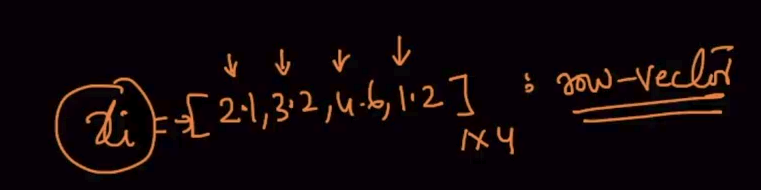 xi = [2.1, 3.2, 4.6, 1.2] 1x4 : row-vector